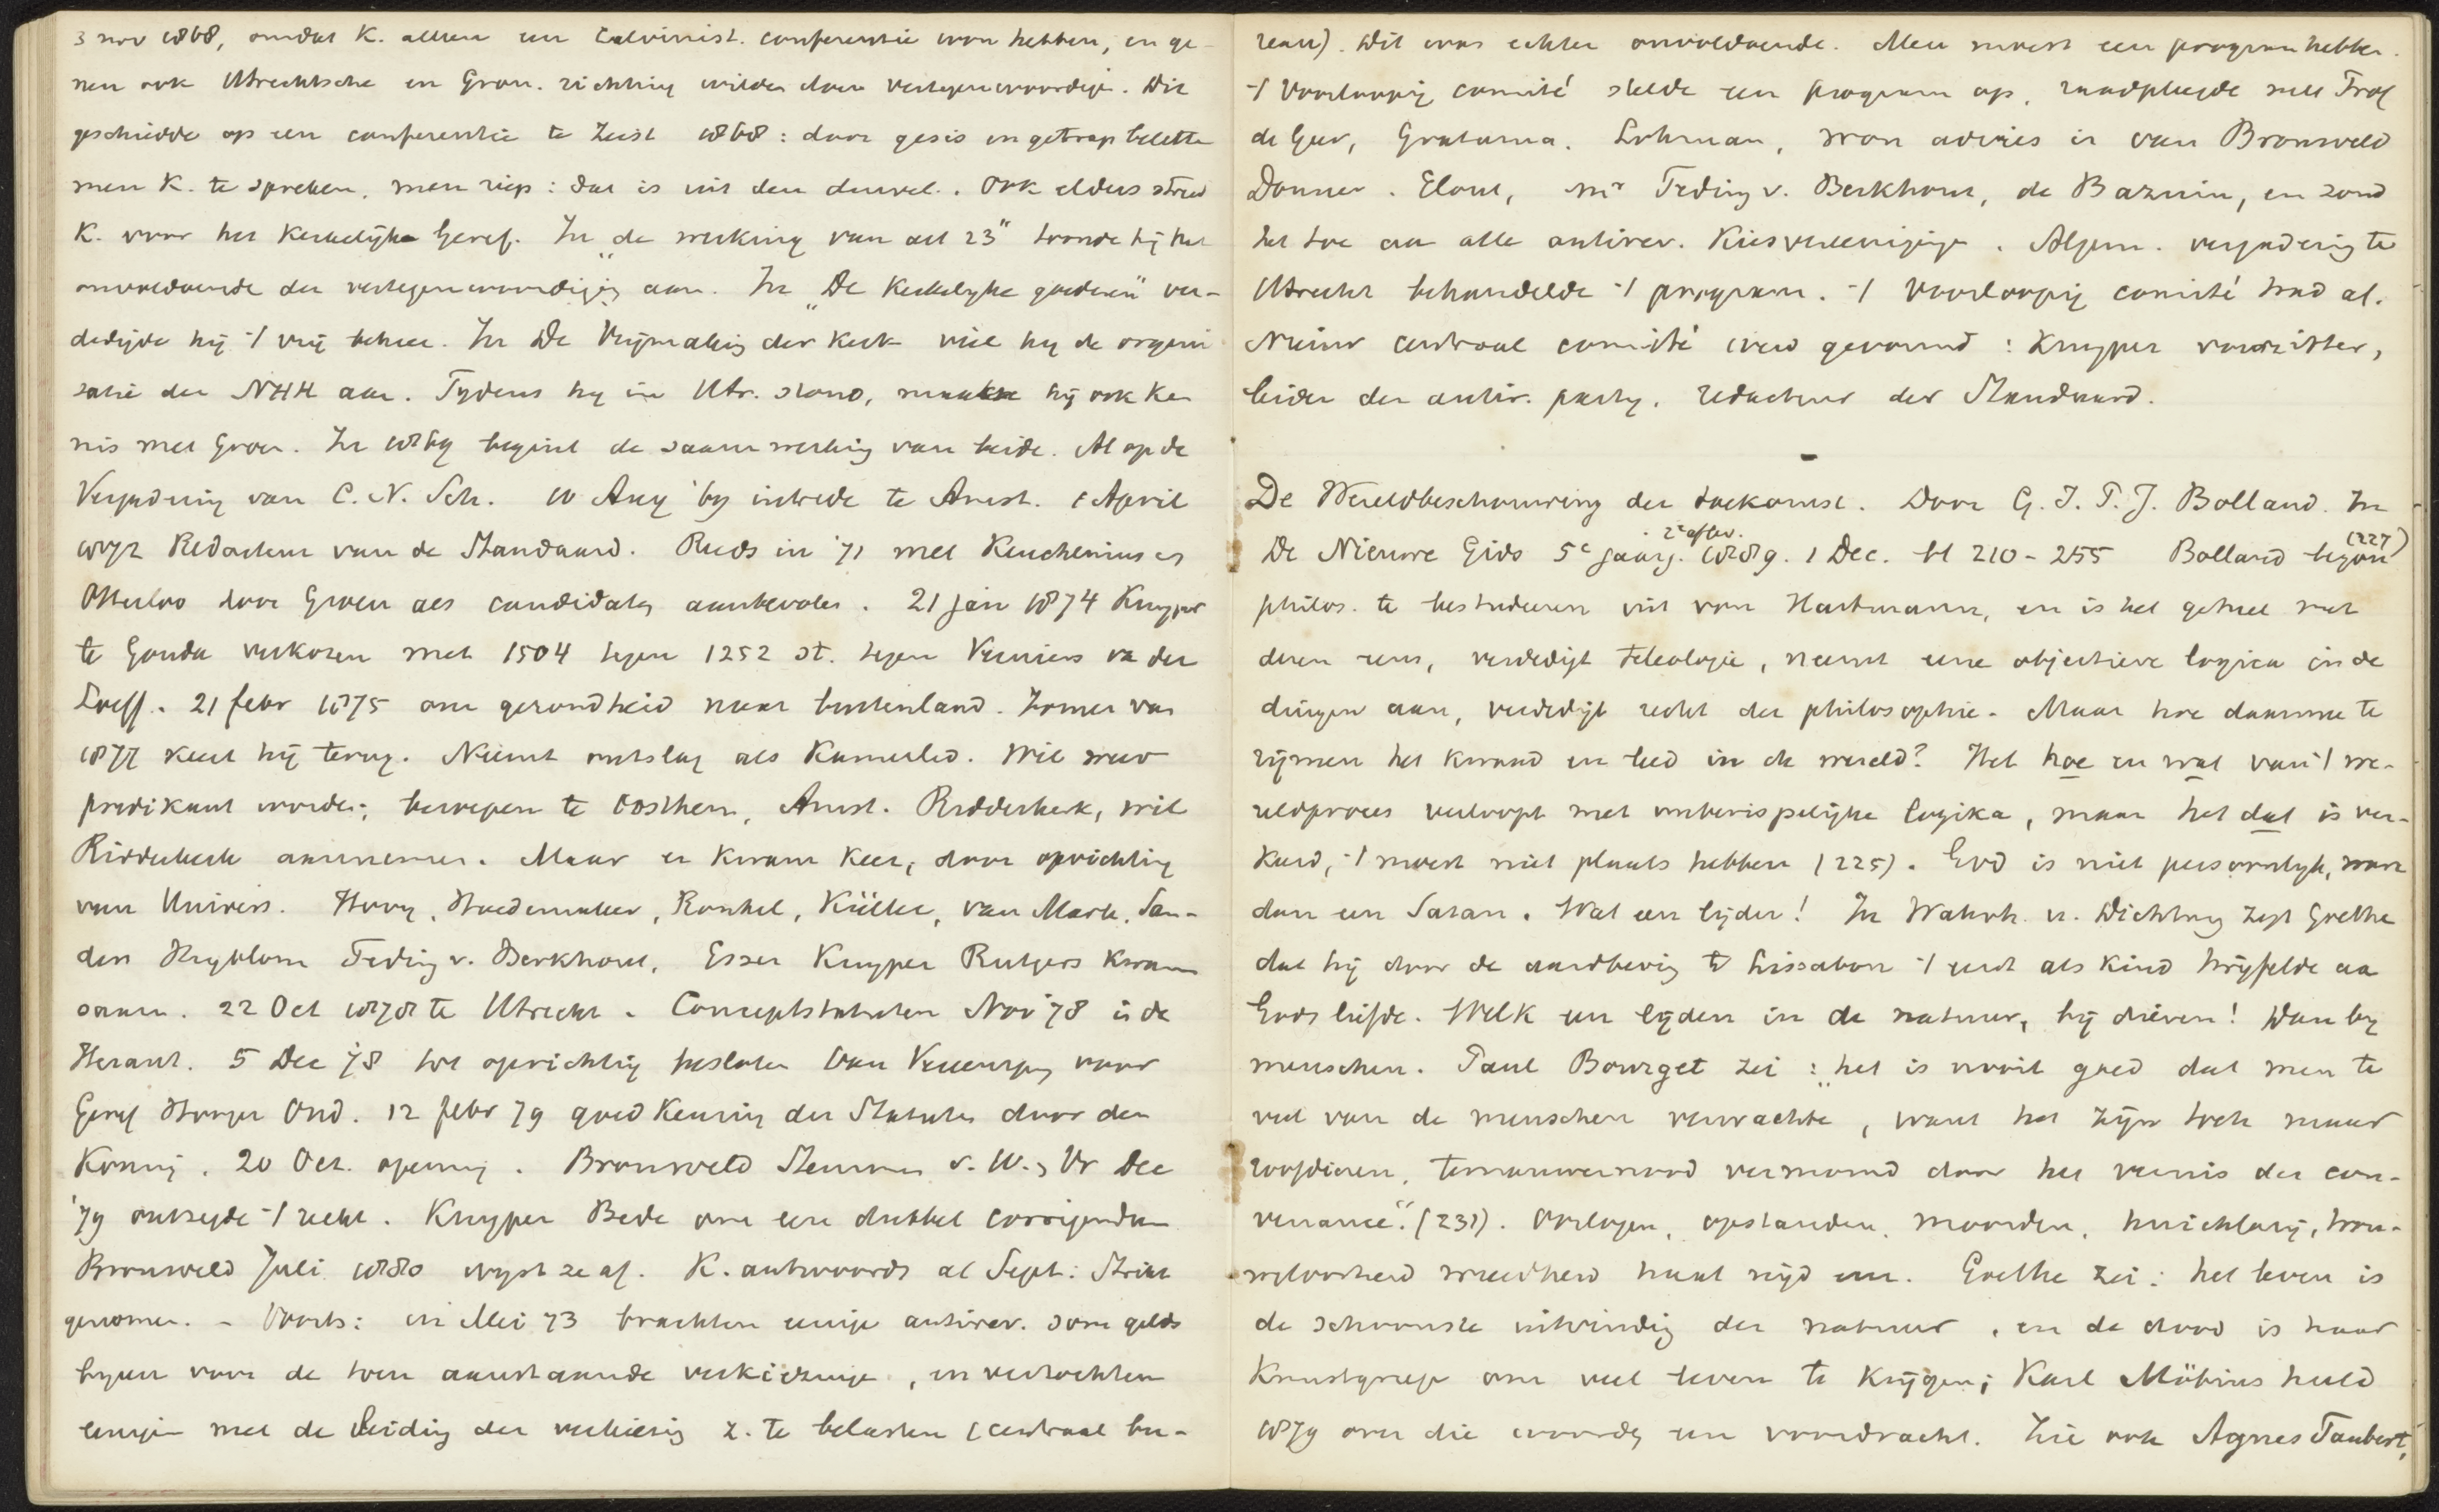 3 nov 1868, omdat K. alleen een Calvinist. conferentie wou hebben, en ge-
nen ook Utrechtsche en Gron. richting wilden doen vertegenwoordigen. Dit
geschiedde op een conferentie te Zeist 1868: door gesis en getrap belette
men K. te spreken, men riep: dat is uit den duivel. Ook elders streed
K. voor het Kerkelijke Geref. In „de werking van art 23" toonde hij het
onvoldoende der vertegenwoordiging aan. In „De Kerkelijke goederen" ver-
dedigde hij 't vrij beheer. In De Vrijmaking der Kerk viel hij de organi
satie der NHK aan. Tijdens hij in Utr. stond, maakte hij ook ken
nis met Groen. In 1869 begint de saamwerking van beide. Al op de
Vergadering van C. N. Sch. 10 Aug '70 intrede te Amst. 1 April
1872 Redacteur van de Standaard. Reeds in '71 met Keuchenius en
Otterloo door Groen als candidaten aanbevolen. 21 jan 1874 Kuyper
te Gouda verkozen met 1504 tegen 1252 st. tegen Verniers va der
Loeff. 21 febr 1875 om gezondheid naar buitenland. Zomer van
1877 keert hij terug. Neemt ontslag als Kamerlid. Wil weer
predikant worden; beroepen te Oosthem, Amst. Ridderkerk, wil
Ridderkerk aannemen. Maar er kwam keer, door oprichting
van Univers. Hovy, Hoedemaker, Ronkel, Küller, van Mark, San-
ders Heyblom Teding v. Berkhout, Esser Kuyper Rutgers kwam
saam. 22 Oct 1878 te Utrecht. Conceptstatuten Nov '78 in de
Heraut. 5 Dec '78 tot oprichting besloten van Vereeniging voor
Geref Hooger Ond. 12 febr 79 goedkeuring der Statuten door den
Koning. 20 Oct. opening. Bronsveld Stemmen v. W. & Vr Dec
'79 ontzegde 't recht. Kuyper Bede om een dubbel corrigendum
Bronsveld Juli 1880 wijst ze af. K. antwoordt al Sept: Strikt
genomen. – Voorts: in Mei 73 brachten eenige antirev. som gelds
bijeen voor de toen aanstaande verkiezingen, en verzochten
eenigen met de Leiding der verkiezing z. te belasten (centraal bu-
reau). Dit was echter onvoldoende. Men moest een program hebben.
't Voorloopig comité stelde een program op, raadpleegde met Prof
de Geer, Gratama. Lohman, won advies in van Bronsveld
Donner. Elout, Mr Teding v. Berkhout, de Bazuin, en zond
het toe aan alle antirev. Kiesvereenigingen. Algem. vergadering te
Utrecht behandelde 't program. 't Voorloopig comité trad af.
Nieuw centraal comité werd gevormd: Kuyper voorzitter,
leider der antir. partij, redacteur der Standaard.
De Wereldbeschouwing der toekomst. Door G. J. P. J. Bolland. In
De Nieuwe Gids 5e jaarg. 2e aflev. 1889. 1 Dec. bl 210-255 Bolland begon (227)
philos. te bestudeeren uit von Hartmann, en is het geheel met
dezen eens, verdedigt teleologie, neemt eene objectieve logica in de
dingen aan, verdedigt recht der philosophie. Maar hoe daarmee te
rijmen het kwaad en leed in de wereld? Het hoe en wat van 't we-
reldproces verloopt met onberispelijke logika, maar het dat is ver-
keerd, 't moest niet plaats hebben (225). God is niet persoonlijk, want
dan een Satan. Wat een lijden! In Wahrh. u. Dichtung zegt Goethe
dat hij door de aardbeving te Lissabon 't eerst als kind twijfelde aan
Gods liefde. Welk een lijden in de natuur, bij dieren! Dan bij
menschen. Paul Bourget zei: „het is nooit goed dat men te
veel van de menschen verwachte, want het zijn toch maar
roofdieren, ternauwernood vermomd door het vernis der con-
venance." (231). Oorlogen, opstanden, moorden, huichelarij, trou-
weloosheid wreedheid haat nijd enz. Goethe zei: het leven is
de schoonste uitvinding der natuur, en de dood is haar
Kunstgreep om veel leven te krijgen; Karl Möbius hield
1879 over die woorden een voordracht. Zie ook Agnes Taubert,